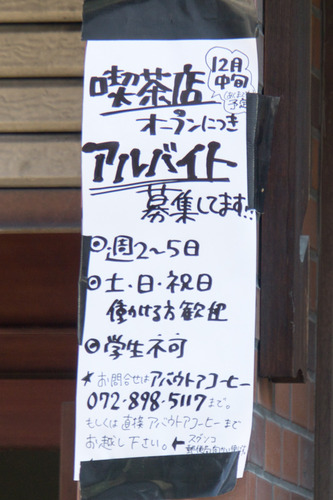 12月
中旬
予定
喫茶店
オープンにつき
アルバイト
募集してます!!
◎週2〜5日
◎土・日・祝日
働ける方歓迎
◎学生不可
★お問合せはアバウトアコーヒー
072-898-5117まで。
もしくは直接アバウトアコーヒーまで
お越し下さい。←スグソコ